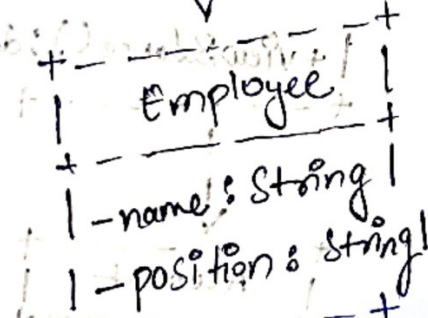 Employee
- name : String
- position : String